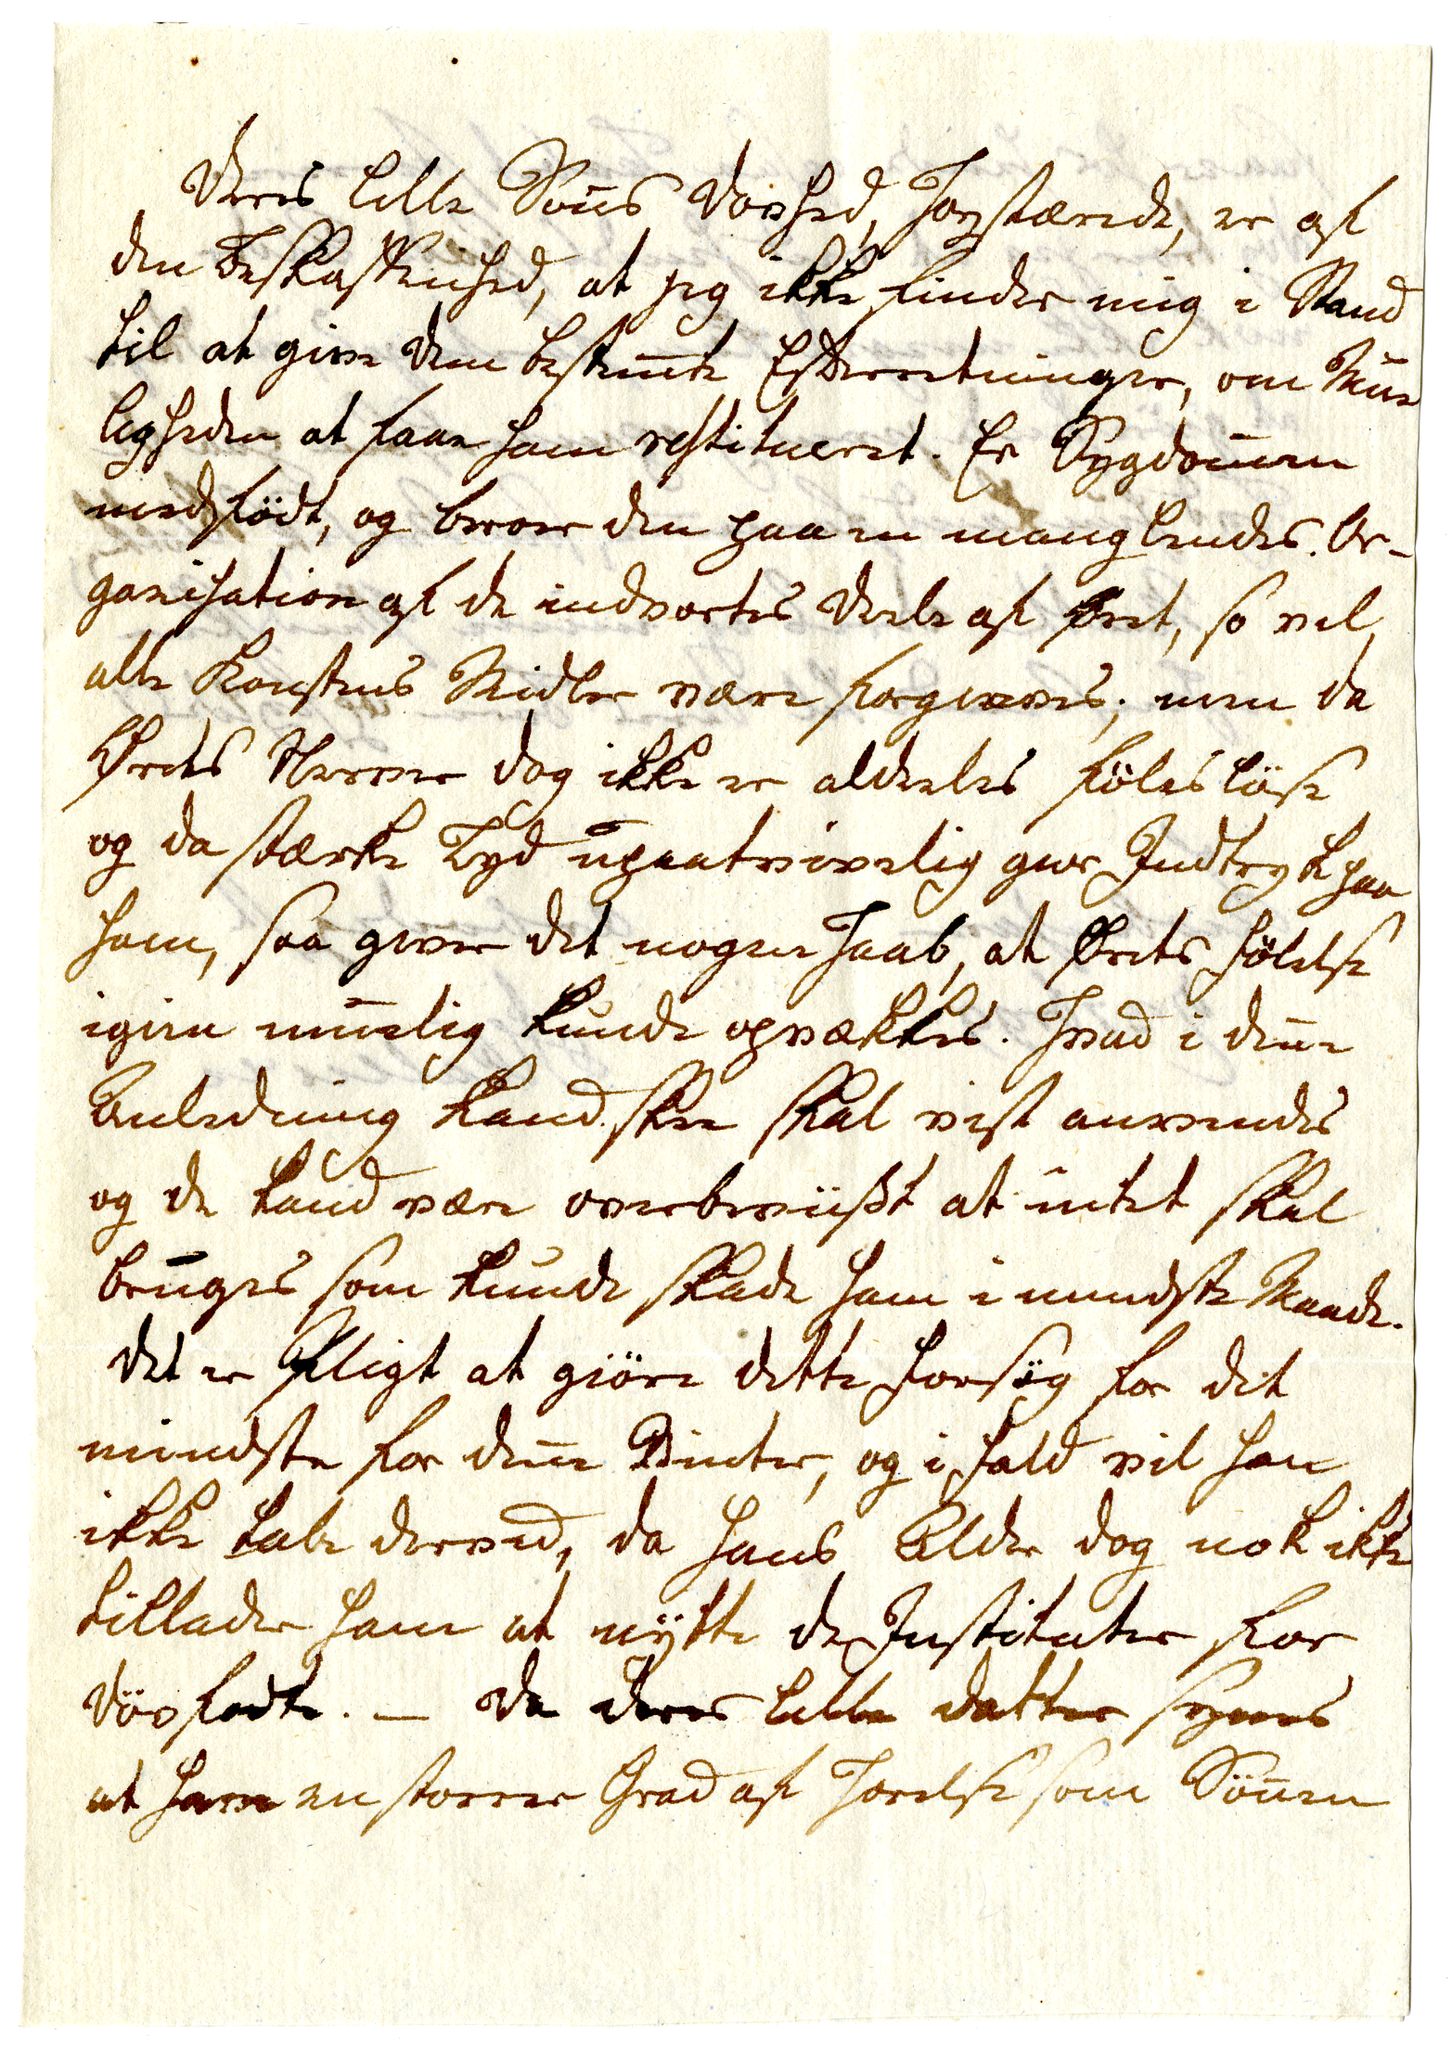 Deres lille Søns Døvhed, Højstærede, er af
den Beskaffenhed, at jeg ikke finder mig i Stand
til at give dem bestemte Efterretninger, om Mue
ligheden at faae ham restitueret. Er Sygdommen
medfödt, og beroer den paa en manglendes Or-
ganisation af de indvortes Deele af Øret, so vil
alle Konstens Midler være forgieves; men da
Ørets Nerver dog ikke er aldeeles fölelslöse
og da stærke Lyd upaatvivelig giør Indtryk paa
ham, saa giver det nogen Haab, at Ørets fölelse
igien muelig kunde opvækkes. Hvad i denne
Anledning kand skee skal vist anvendes
og De kand være overbeviißt at intet skal
bruges som kunde skade ham i mindste Maade.
Det er Pligt at giöre dette Forsög for det
mindste for denne Vinter, og i fald vil han
ikke tabe derved, da hans Alder dog nok ikke
tillader ham at nÿtte de Instituter for
Dövfödte. — Da Deres lille Datter synes
at have en storrer Grad af Horelse som Sönnen